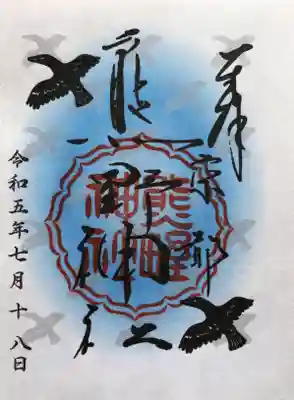 奉
熊野神社
熊野神社
令和五年七月十八日